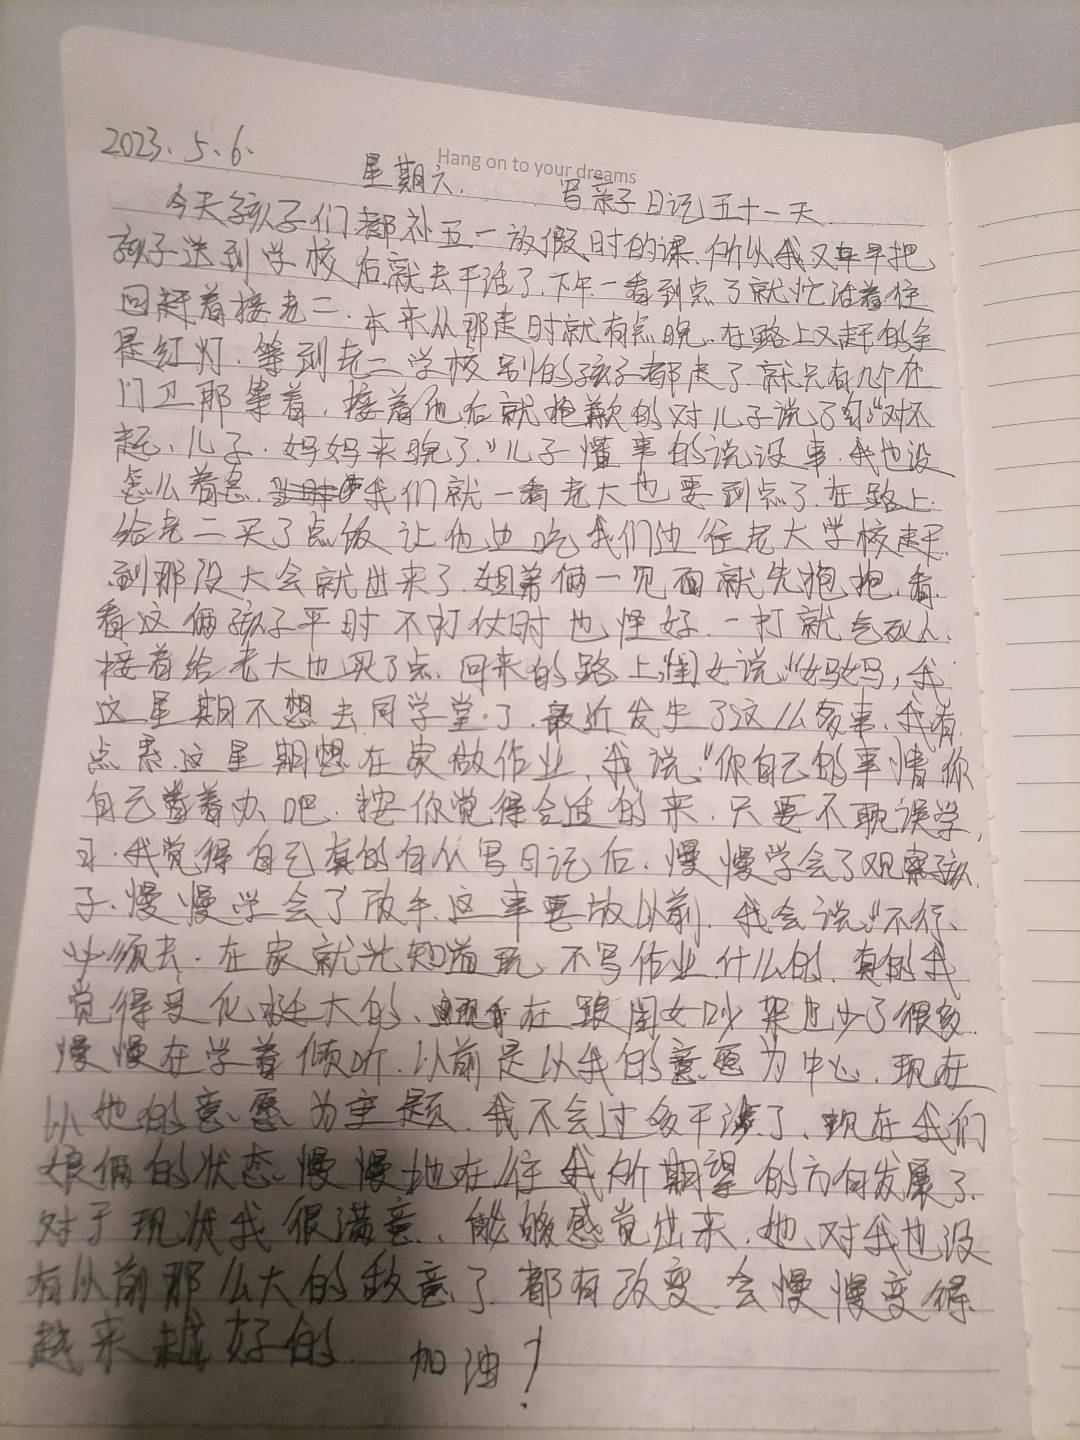 Hang on to your dreams
2023.5.6. 星期六. 写亲子日记五十一天.
今天孩子们都补五一放假时的课.所以我又早早把
孩子送到学校后就去干活了.下午一看到点了就忙活着往
回赶着接老二.本来从那走时就有点晚.在路上又赶的全
是红灯.等到老二学校别的孩子都走了.就只有几个在
门卫那等着.接着他后就抱歉的对儿子说了句"对不
起、儿子.妈妈来晚了."儿子懂事的说没事.我也没
怎么着急.我们就一看老大也要到点了.在路上
给老二买了点饭让他边吃我们边往老大学校赶.
到那没大会就出来了.姐弟俩一见面就先抱抱,看
看这俩孩子平时不打仗时也怪好.一打就气死人.
接着给老大也买了点.回来的路上闺女说"妈妈,我
这星期不想去同学堂了.最近发生了这么多事.我有
点累.这星期想在家做作业.我说:"你自己的事情你
自己看着办吧.按你觉得合适的来.只要不耽误学
习.我觉得自己真的自从写日记后.慢慢学会了观察孩
子.慢慢学会了放手.这事要放以前.我会说"不行、
必须去.在家就光知道玩、不写作业什么的.真的我
觉得变化挺大的、现在跟闺女吵架也少了很多.
慢慢在学着倾听.以前是以我的意愿为中心.现在
以她的意愿为主题.我不会过多干涉了、现在我们
娘俩的状态慢慢地在往我所期望的方向发展了.
对于现状我很满意、能够感觉出来.她对我也没
有以前那么大的敌意了.都有改变.会慢慢变得
越来越好的. 加油!